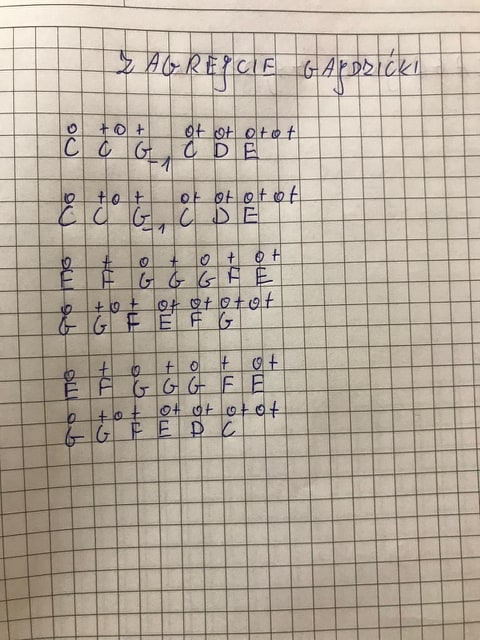 ZAGREJCIE GAJDZIĆKI
o +o+ o+ o+ o+o+
C C G-1 C D E
o +o + o+ o+ o+ o+
C C G-1 C D E
o + o + o + o+
E F G G G F E
o +o+ o+ o+ o+o+
G G F E F G
o + o + o + o+
E F G G G F E
o +o+ o+ o+ o+o+
G G F E D C